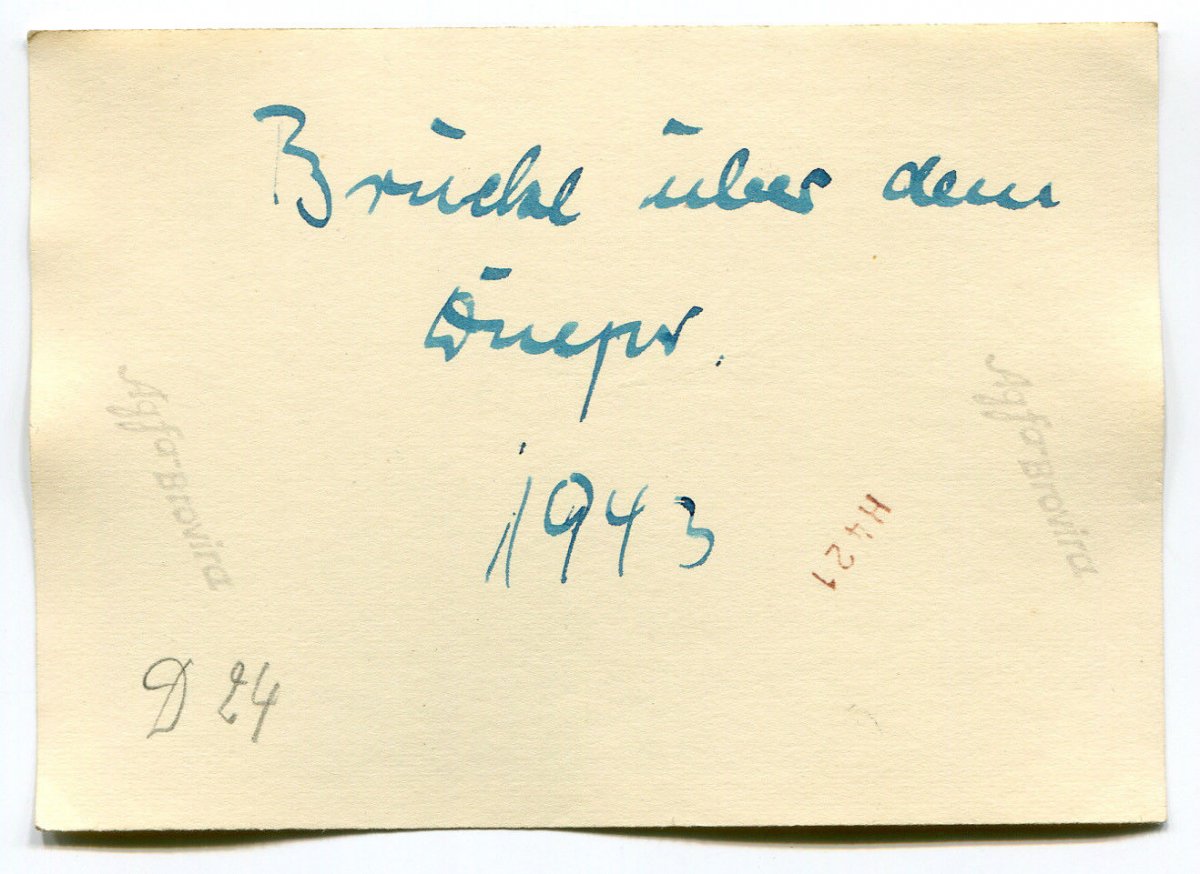 Brücke über dem
Dnepr.
1943
H421
Agfa-Brovira
Agfa-Brovira
D 24